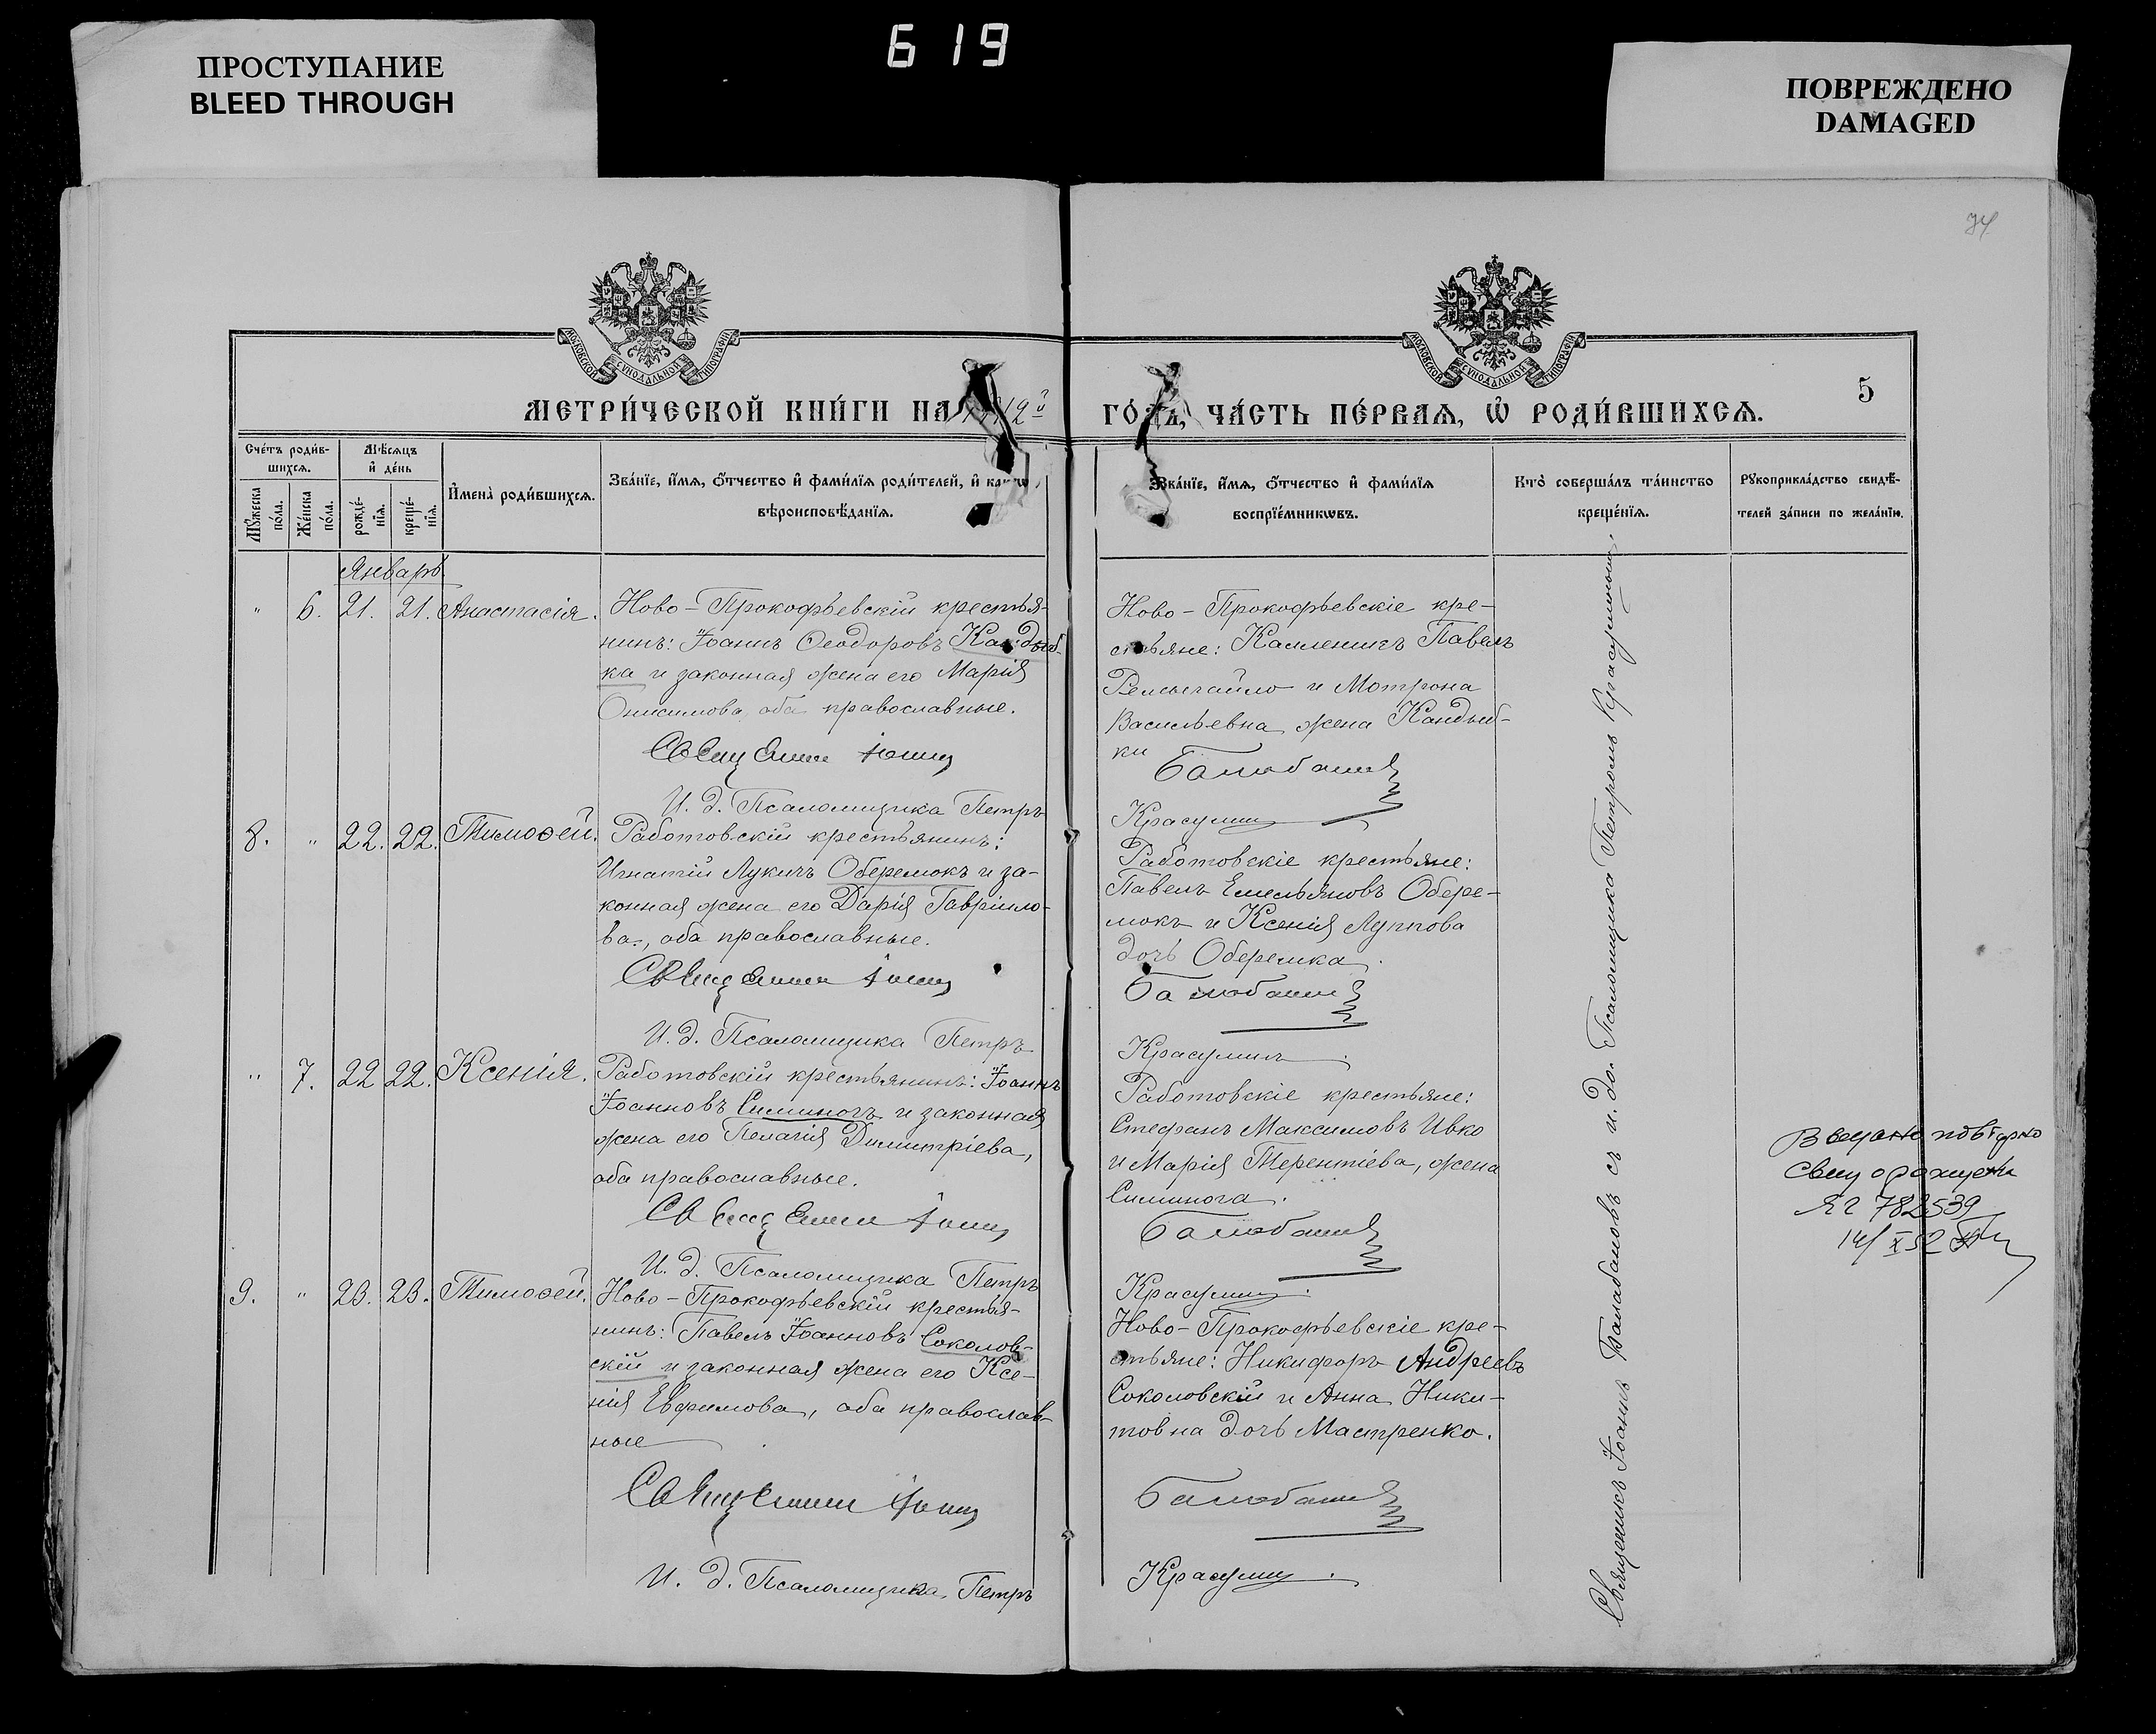 ПРОСТУПАНИЕ
BLEED THROUGH
619
ПОВРЕЖДЕНО
DAMAGED
МОСКОВСКОЙ СѴНОДАЛЬНОЙ ТИПОГРАФІИ
МЕТРИ́ЧЕСКОЙ КНИ́ГИ НА
МОСКОВСКОЙ СѴНОДАЛЬНОЙ ТИПОГРАФІИ
ГО́ДЪ, ЧА́СТЬ ПЕ́РВАѦ, Ѡ҆ РОДИ́ВШИХСѦ.
5
Сче́тъ роди́в-
шихсѧ.
Мѣ́сѧцъ
и҆ де́нь
Мꙋ́жеска
по́ла.
Же́нска
по́ла.
рожде́-
нїѧ.
креще́-
нїѧ.
И҆мена̀ роди́вшихсѧ.
Зва́нїе, и҆́мѧ, ѻ҆́тчество и҆ фами́лїѧ роди́телей, и҆
вѣроисповѣ́данїѧ.
Зва́нїе, и҆́мѧ, ѻ҆́тчество и҆ фами́лїѧ
воспрїе́мникѡвъ.
Кто̀ соверша́лъ та́инство
креще́нїѧ.
Рꙋкоприкла́дство свидѣ́-
телей за́писи по жела́нїю.
Январь
" 6. 21. 21. Анастасія.
Ново-Прокофьевскій крестья-
нинъ: Іоаннъ Ѳеодоровъ Кандыб-
ка и законная жена его Марія
Онисимова, оба православные.
Священникъ Іоаннъ
И. д. Псаломщика Петръ
Ново-Прокофьевскіе кре-
стьяне: Каленикъ Павелъ
и Мотрона
Васильевна жена Кандыб-
ки
Балабановъ
Красулинъ
8. " 22. 22. Тимоѳей.
Работовскій крестьянинъ:
Игнатій Лукичъ Оберемокъ и за-
конная жена его Дарія Гавріило-
ва, оба православные.
Священникъ Іоаннъ
И. д. Псаломщика Петръ
Работовскіе крестьяне:
Павелъ Емельяновъ Обере-
мокъ и Ксенія Луппова
дочь Оберемка.
Балабановъ
Красулинъ.
" 7. 22 22. Ксенія.
Работовскій крестьянинъ: Іоаннъ
Іоанновъ Симиногъ и законная
жена его Пелагія Димитріева,
оба православные.
Священникъ Іоаннъ
И. д. Псаломщика Петръ
Работовскіе крестьяне:
Стефанъ Максимовъ Ивко
и Марія Терентіева, жена
Симинога.
Балабановъ
Красулинъ.
Выдано повторно
свид о рожден
ЯГ 782539
14/X 52
9. " 23. 23. Тимоѳей.
Ново-Прокофьевскій крестья-
нинъ: Павелъ Іоанновъ Соколов-
скій и законная жена его Ксе-
нія Евфимова, оба православ-
ные
Священникъ Іоаннъ
И. д. Псаломщика, Петръ
Ново-Прокофьевскіе кре-
стьяне: Никифоръ Андреевъ
Соколовскій и Анна Ники-
товна дочь Мастренко.
Балабановъ
Красулинъ.
Священникъ Іоаннъ Балабановъ съ и. до. Псаломщика Петромъ Красулинымъ.